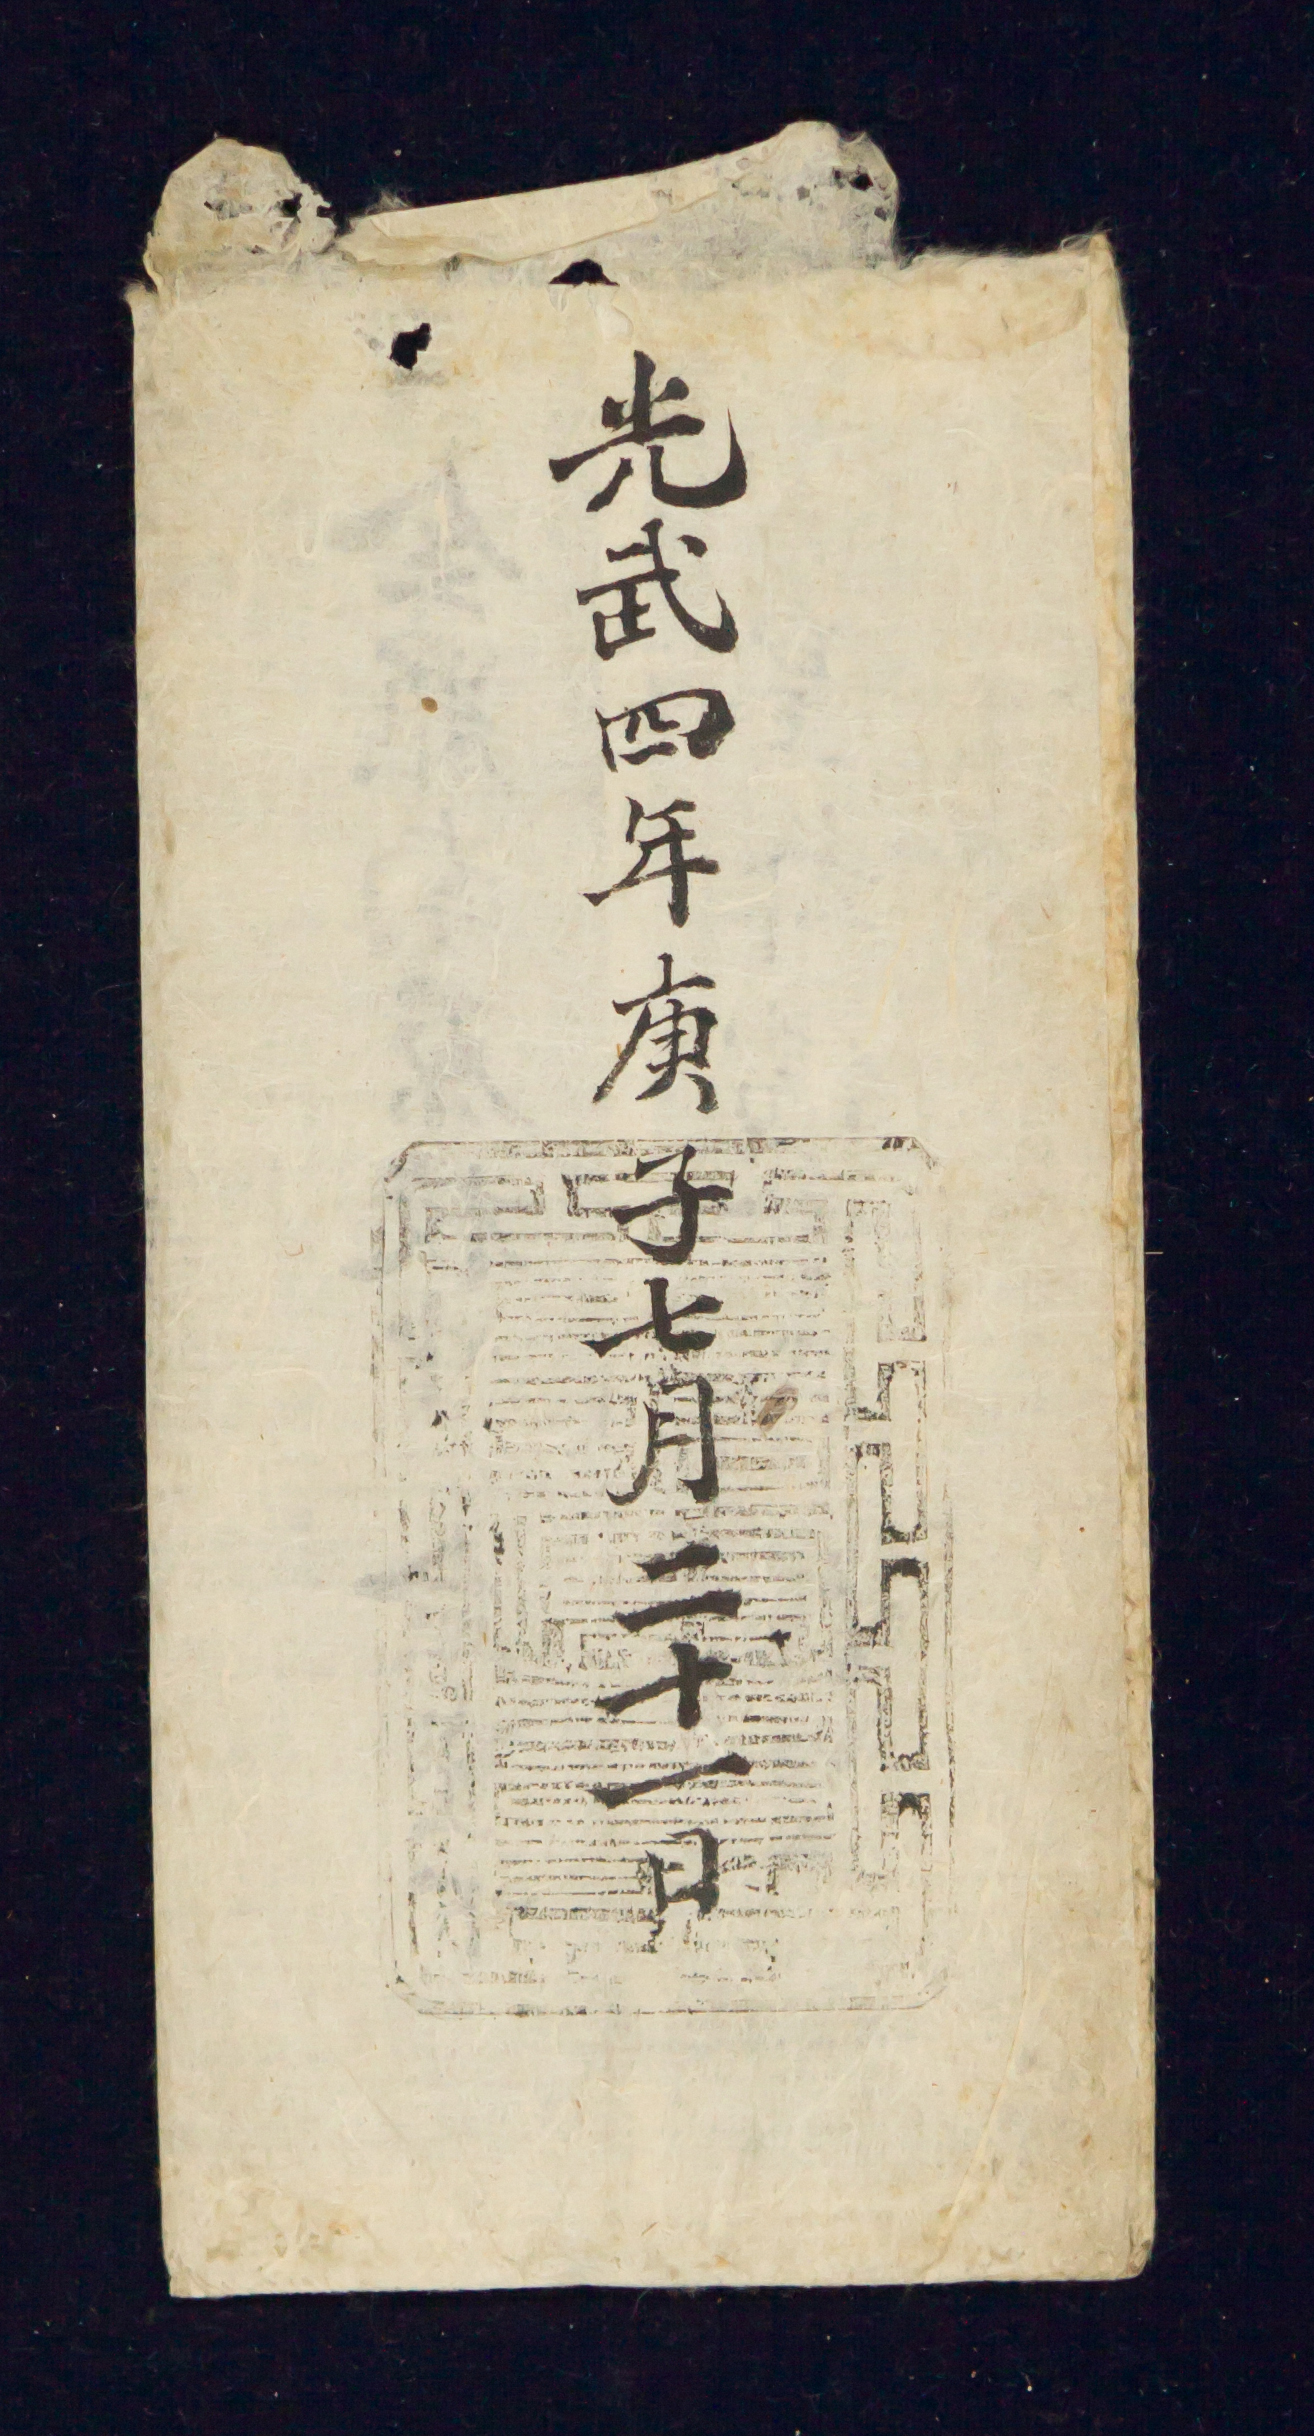 光武四年庚子七月二十一日